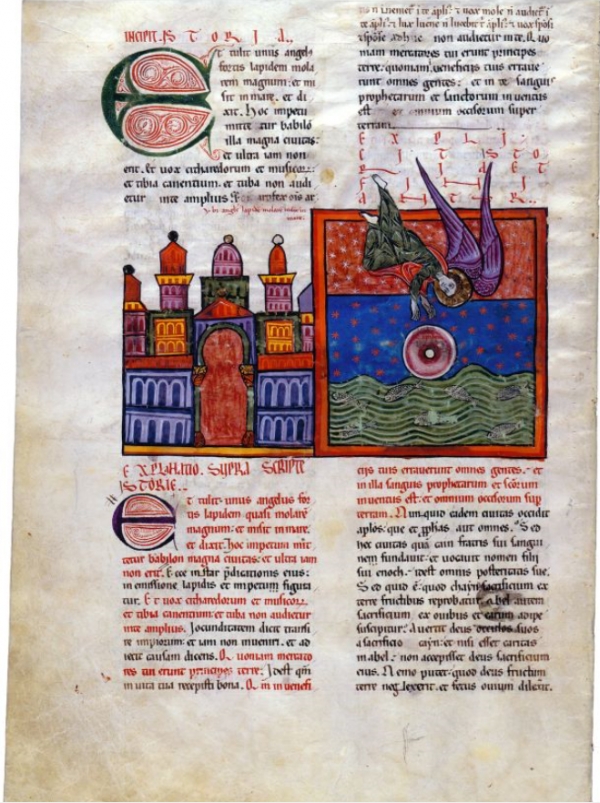 INCIPIT ISTORIA
Et tulit unus angel
fortis lapidem mola
rem magnum: et mi
sit in mare. et di
xit. hoc impetu
mittetur babilo
illa magna ciuitas:
et ultra iam non
erit. Et uox citharedorum et musicorum:
et tibia canentium. et tuba non audi
etur inte amplius. ois ar
Vbi angls lapide molare misit in
mare.
te apłs: et lux lucerne
spose non audietur inte. Quo
niam mercatores tui erunt principes
terre: quoniam ueneficiis tuis erraue
runt omnes gentes: et in te sanguis
prophetarum et sanctorum inuentus
est: et omnium occisorum super
terram.
EXPLI
CIT ISTO
EXPLANATIO. SUPRA SCRIPTE
ISTORIE.
Et tulit unus angelus for
tis lapidem quasi molarē
magnum: et misit in mare.
et dixit. hoc impetum mit
tetur babilon magna ciuitas: et ultra iam
non erit. Ecce instar pdicationis eius:
in emissione lapidis et impetum figura
tur. Et uox citharedorum et musicorū:
et tibia canentium: et tuba non audietur
inte amplius. Jocunditatem dicit transi
re impiorum: et iam non inueniri. et ad
iecit causam dicens. Quoniam mercato
res tui erunt principes terre: Idest qm̄
in uita tua recepisti bona. Qm in uenefi
ciis tuis errauerunt omnes gentes: et
in illa sanguis prophetarum et scōrum
inuentus est: et omnium occisorum sup
terram. Nunquid eadem ciuitas occidit
aplos: que et pphas aut omnes. Sed
hec ciuitas quā cain fratris sui sangui
nem fundauit: et uocauit nomen filii
sui enoch: idest omnis posteritas sue.
Sed quid ē: quod chayn sacrificium ex
terre fructibus reprobatur: abel autem
sacrificium ex ouibus et earum adipe
suscipitur: auertit deus oculos suos
a sacrificio cayn: et nisi esset caritas
in abel: non accepisset deus sacrificium
eius. Nemo putet: quod deus fructum
terre neglexerit. et fetus ouium dilexit.